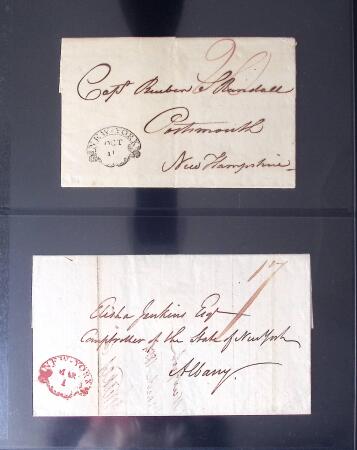 20
Capt Reuben S Randall
Portsmouth
New Hampshire
NEW-YORK
OCT
11
Elisha Jenkins Esqr
Comptroller of the State of New York
Albany.
NEW-YORK
MAR
1